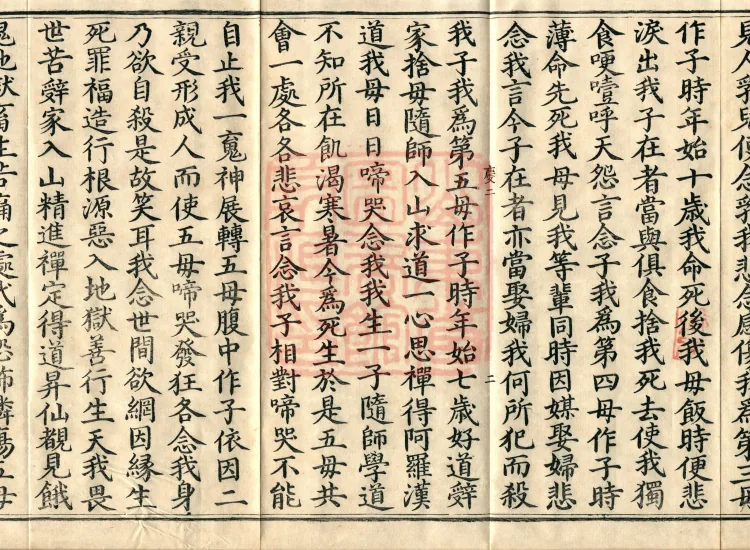 我悲念感傷我為第三母
作子時年始十歲我命死後我母飯時便悲
淚出我子在者當與俱食捨我死去使我獨
食哽噎呼天怨言念子我為第四母作子時
薄命先死我母見我等輩同時因媒娶婦悲
念我言今子在者亦當娶婦我何所犯而殺
二
我子我為第五母作子時年始七歲好道辭
家捨母隨師入山求道一心思禪得阿羅漢
道我母日日啼哭念我我生一子隨師學道
不知所在飢渴寒暑今為死生於是五母共
會一處各各悲哀言念我子相對啼哭不能
自止我一䰟神展轉五母腹中作子依因二
親受形成人而使五母啼哭發狂各念我身
乃欲自殺是故笑耳我念世間欲網因緣生
死罪福造行根源惡入地獄善行生天我畏
世苦辭家入山精進禪定得道昇仙覩見餓
鬼地獄畜生苦痛之處代為恐怖憐傷五母